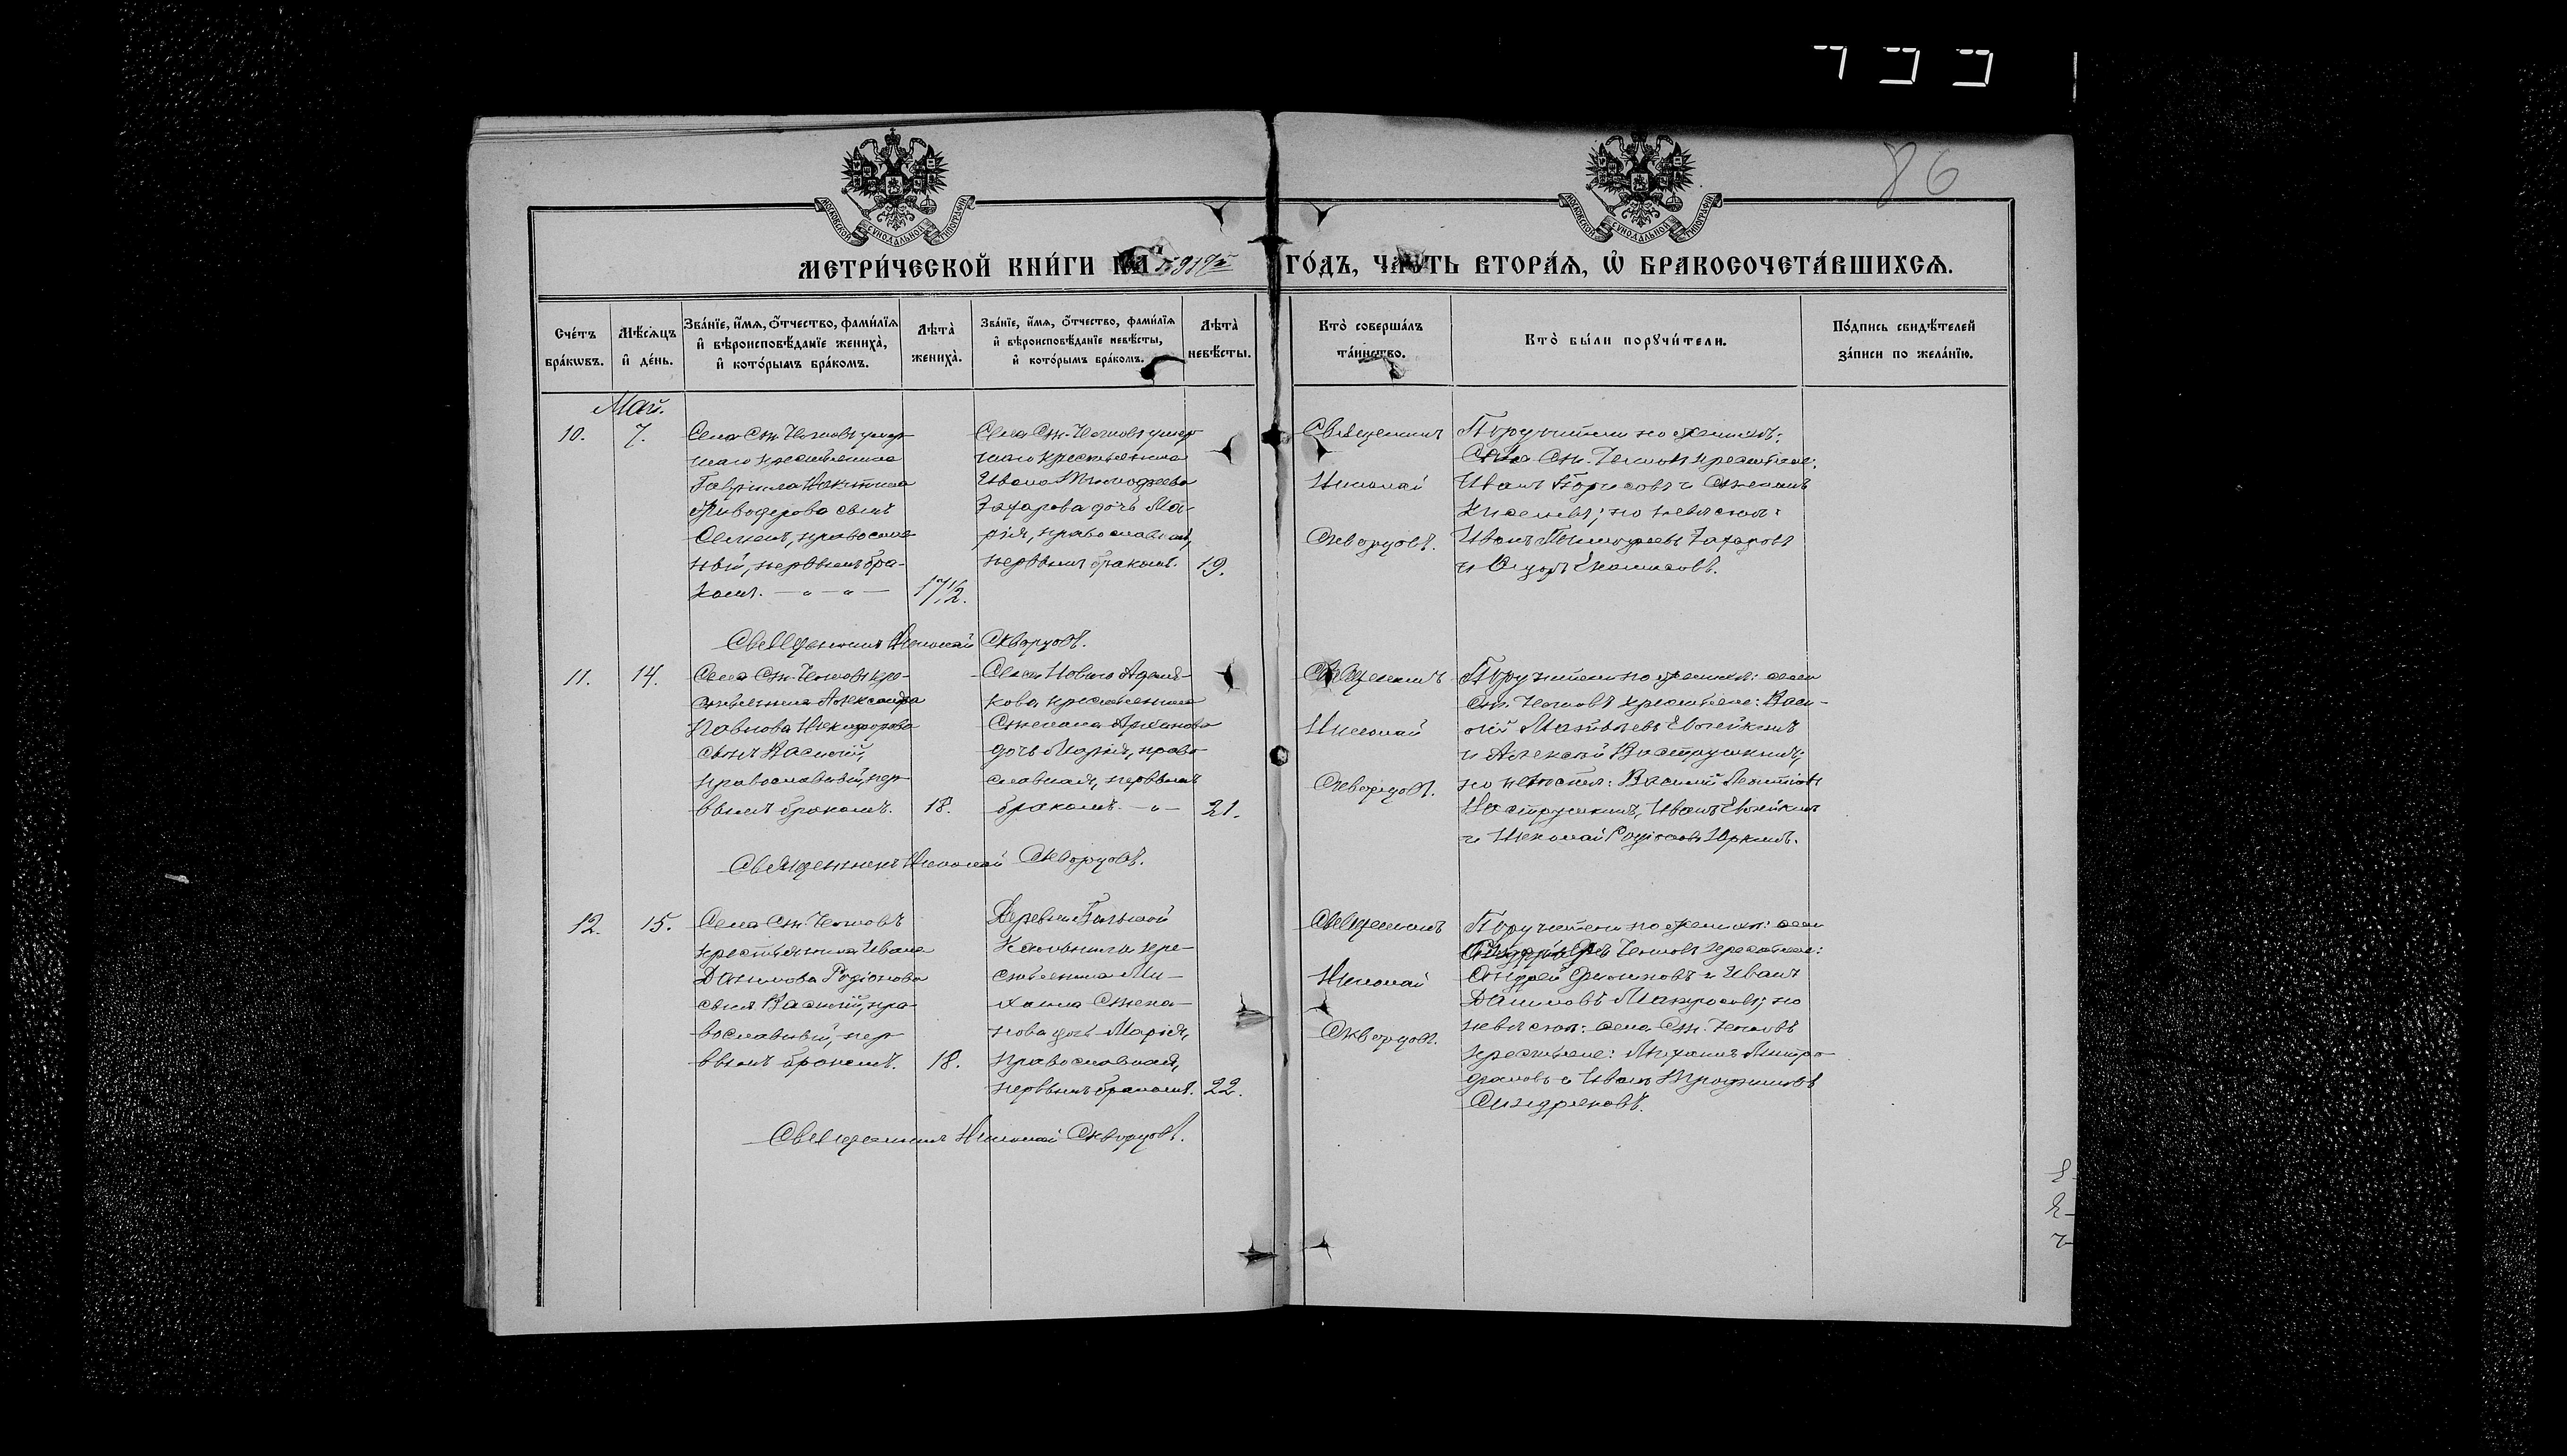 86
МОСКОВСКОЙ СѴНОДАЛЬНОЙ ТИПОГРАФІИ
МОСКОВСКОЙ СѴНОДАЛЬНОЙ ТИПОГРАФІИ
МЕТРИ́ЧЕСКОЙ КНИ́ГИ НА 1917й ГО́ДЪ, ЧА́СТЬ ВТОРА́Ѧ, Ѡ҆ БРАКОСОЧЕТА́ВШИХСѦ.
Сче́тъ бра́кѡвъ.
Мѣ́сѧцъ и҆ де́нь.
Зва́нїе, и҆́мѧ, ѻ҆́тчество, фами́лїѧ и҆ вѣроисповѣ́данїе жениха̀, и҆ кото́рымъ бра́комъ.
Лѣта̀ жениха̀.
Зва́нїе, и҆́мѧ, ѻ҆́тчество, фами́лїѧ и҆ вѣроисповѣ́данїе невѣ́сты, и҆ кото́рымъ бра́комъ.
Лѣта̀ невѣ́сты.
Кто̀ соверша́лъ та́инство.
Кто̀ бы́ли порꙋчи́тели.
По́дпись свидѣ́телей за́писи по жела́нїю.
Май.
10. 7.
Села Ст. Чесловъ умер-
шаго крестьянина
Гавріила Никитина
сынъ
Семенъ, православ-
ный, первымъ бра-
комъ. 17½.
Села Ст. Чесловъ умер-
шаго крестьянина
Ивана Тимофеева
Захарова дочь Ма-
рія, православная,
первымъ бракомъ. 19.
Священникъ
Николай
Скворцовъ.
Поручители по женихѣ:
Села Ст. Чесловъ крестьяне:
Иванъ Борисовъ и Степанъ
Киселевъ; по невѣстѣ:
Иванъ Тимофеевъ Захаровъ
и
Священникъ Николай Скворцовъ.
11. 14.
Села Ст. Чесловъ кре-
стьянина Александра
Павлова Никифорова
сынъ Василій,
православный, пер-
вымъ бракомъ. 18.
Села Новаго Адам-
кова крестьянина
Степана
дочь Марія, право-
славная, первымъ
бракомъ. 21.
Священникъ
Николай
Скворцовъ.
Поручители по женихѣ: села
Ст. Чесловъ крестьяне: Васи-
лій Матвѣевъ
и Алексѣй Вострухинъ;
по невѣстѣ: Василій Леонтіевъ
Иванъ
и Николай Родіоновъ Юркинъ.
Священникъ Николай Скворцовъ.
12. 15.
Села Ст. Чесловъ
крестьянина Ивана
Данилова Родіонова
сынъ Василій, пра-
вославный, пер-
вымъ бракомъ. 18.
Деревни Большой
кре-
стьянина Ми-
хаила Степа-
нова дочь Марія,
православная,
первымъ бракомъ. 22.
Священникъ
Николай
Скворцовъ.
Поручители по женихѣ: села
Чесловъ крестьяне:
Андрей Филиповъ и Иванъ
Даниловъ по
невѣстѣ: села Ст. Чесловъ
крестьяне: Михаилъ Митро-
фановъ и Иванъ Трофимовъ
Андреяновъ.
Священникъ Николай Скворцовъ.